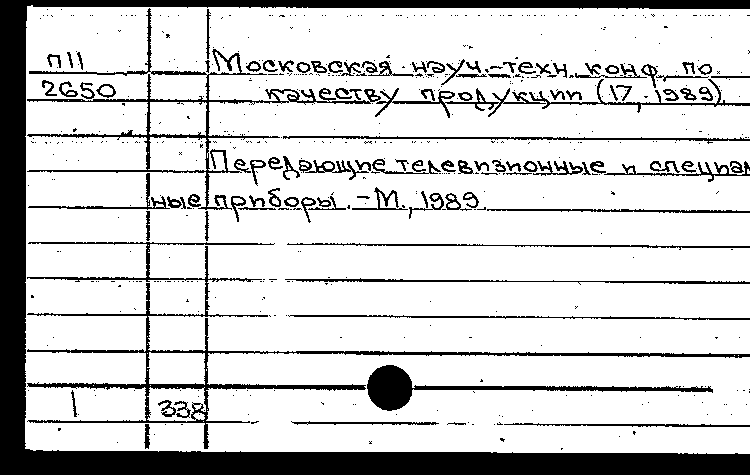 П11
2650
Московская науч.-техн. конф. по
качеству продукции (17, 1989).
Передающие телевизионные и специал
ные приборы. - М., 1989.
1
338